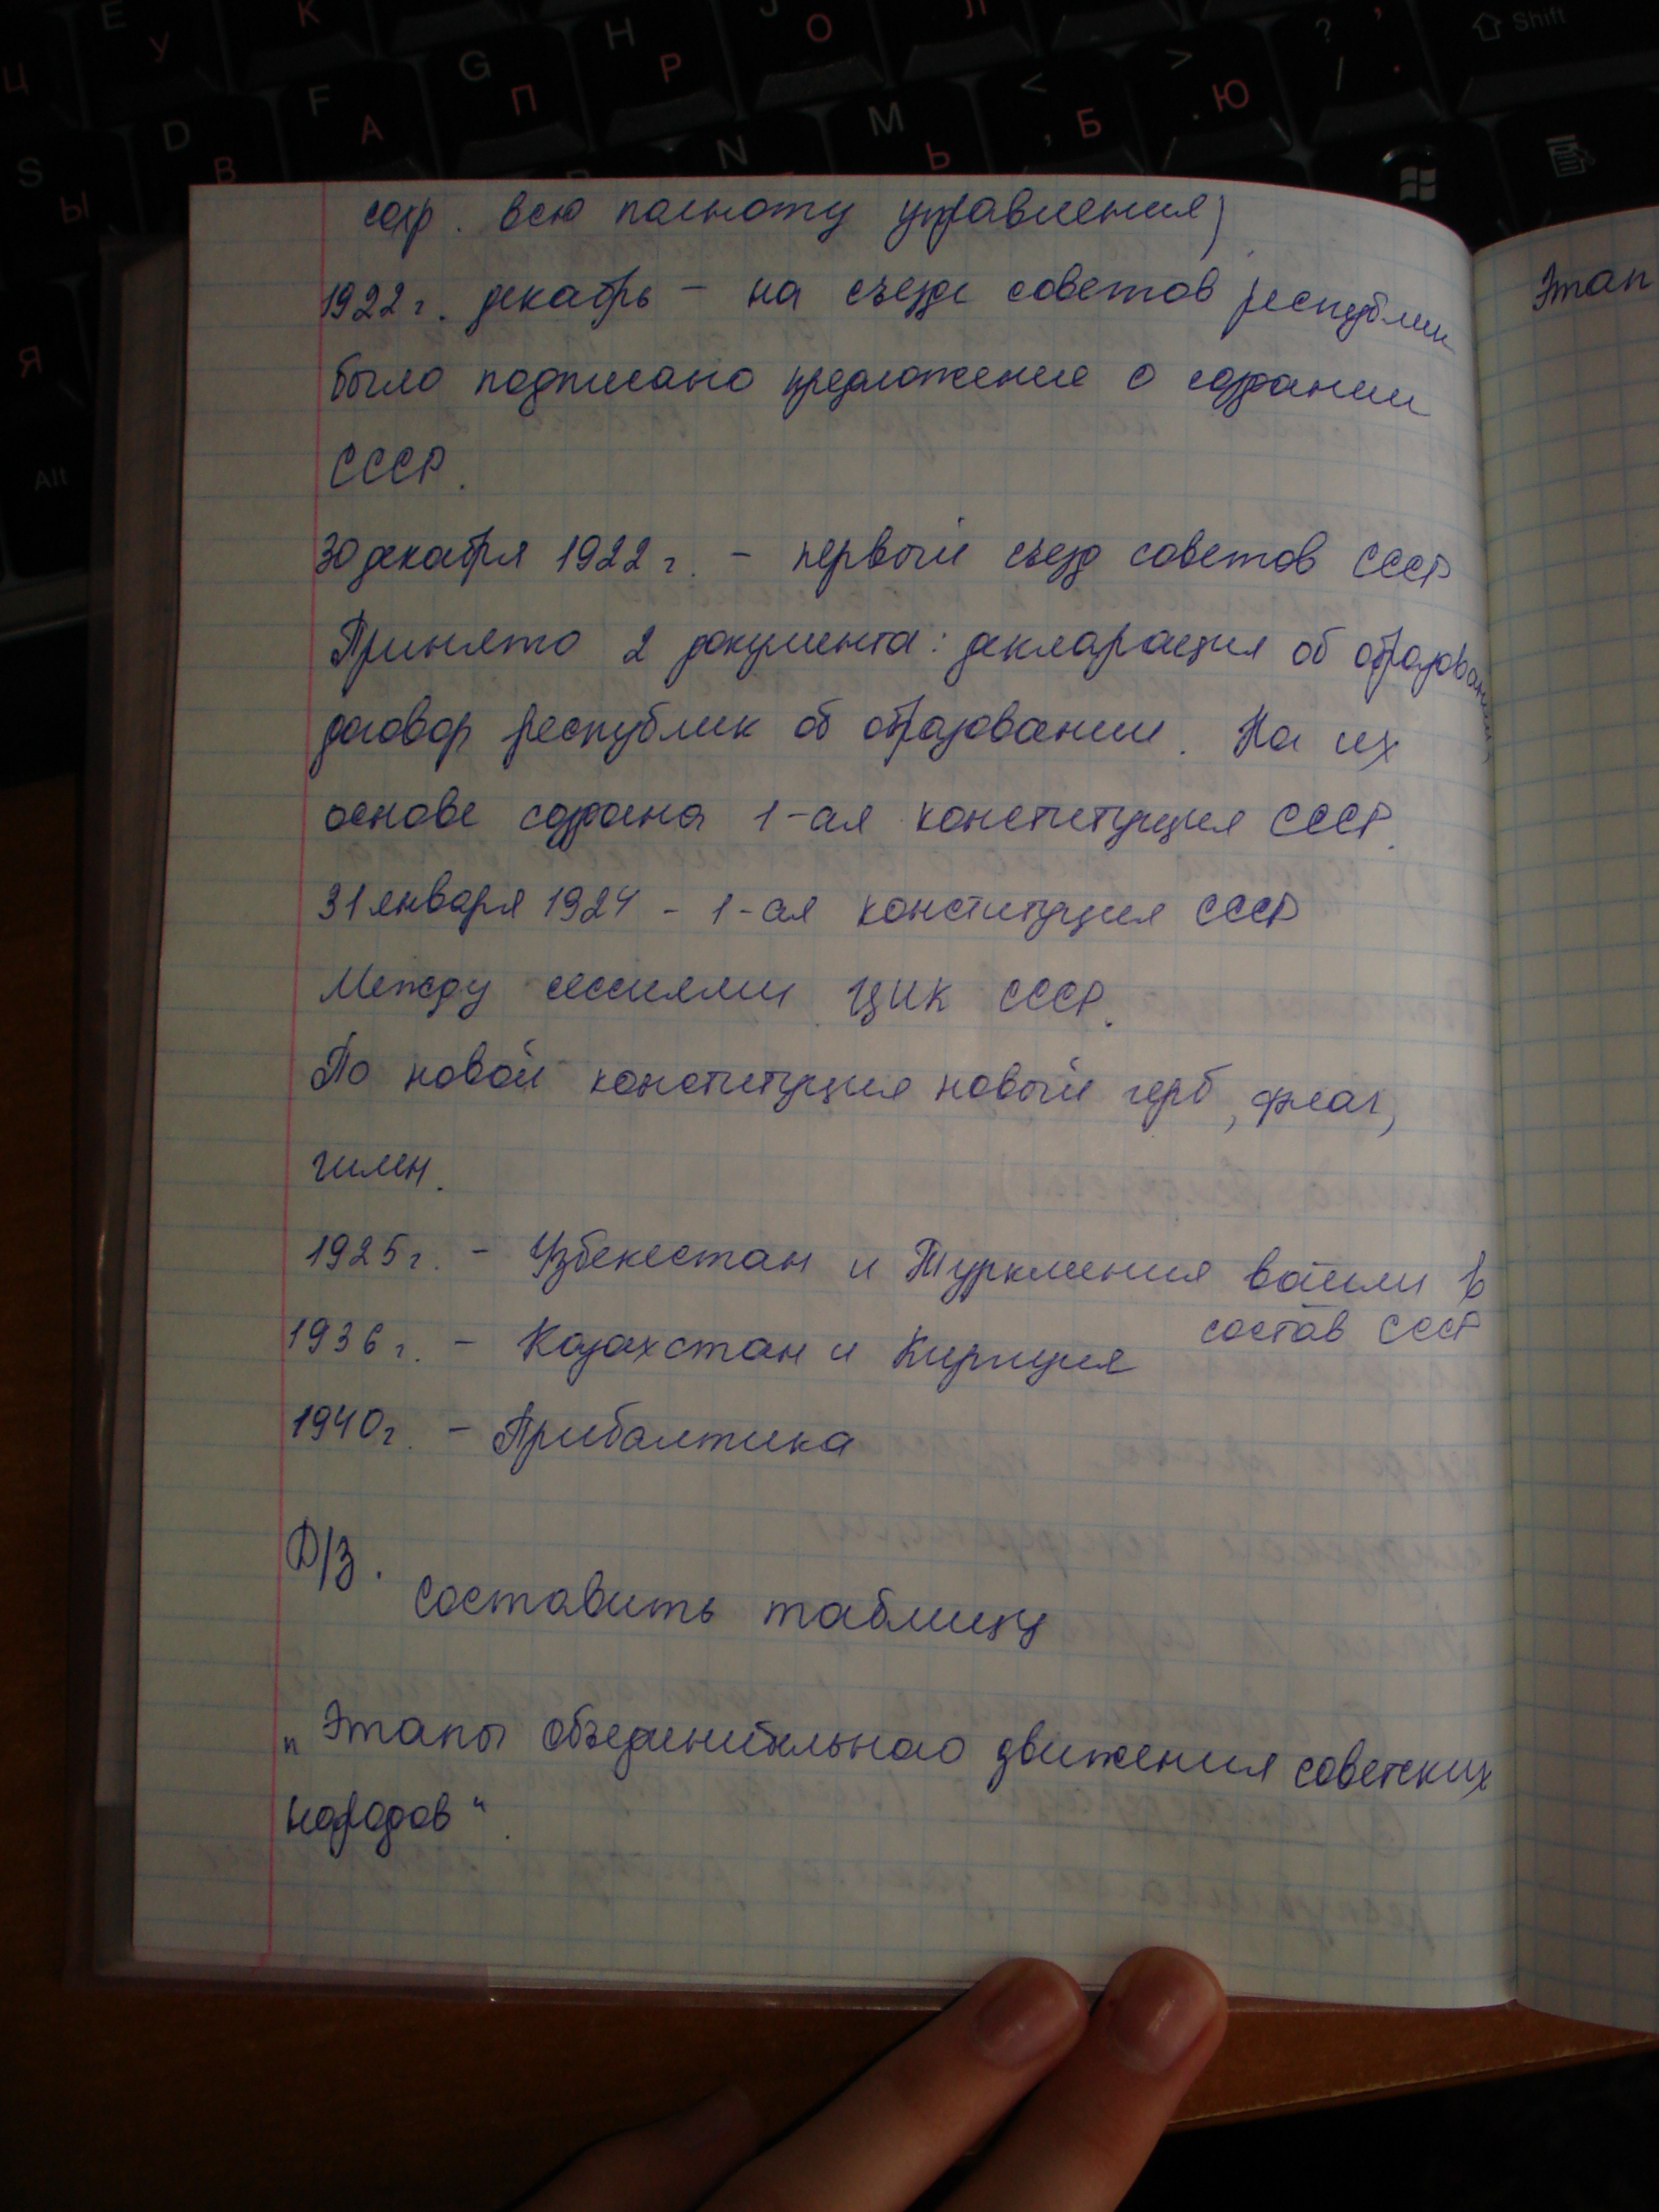 Ц
E
У
К
J
О
Л
Shift
H
Р
G
П
F
А
D
В
S
Ы
Я
Alt
N
M
Ь
<
, Б
>
. Ю
?
,
/
.
сохр. всю полноту управления)
1922 г. декабрь – на съезде советов республик
было подписано предложение о создании
СССР.
30 декабря 1922 г. – первый съезд советов СССР
Принято 2 документа: декларация об образовании,
договор республик об образовании. На их
основе создана 1-ая конституция СССР.
31 января 1924 – 1-ая конституция СССР
Между сессиями ЦИК СССР.
По новой конституция новый герб, флаг,
гимн.
1925 г. – Узбекестан и Туркмения вошли в
состав СССР
1936 г. – Казахстан и Киргиция
1940 г. – Прибалтика
Д/З. Составить таблицу
„Этапы объеденительнао движения советских
народов“.
Этап